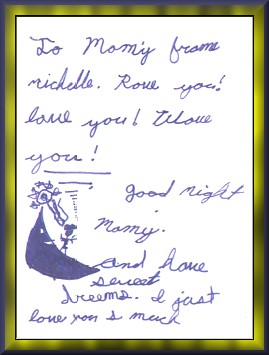 To Momy frome
michelle. I love you!
love you! I love
you!
good night
Momy.
and have
sweet
dreems. I just
love you s much